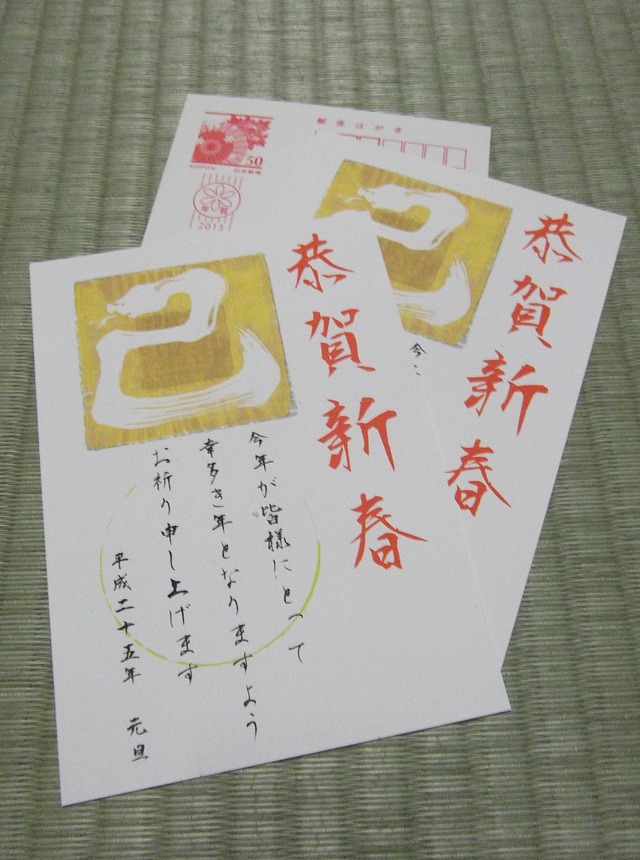 恭賀新春
巳
今年が皆様にとって
幸多き年となりますよう
お祈り申し上げます
平成二十五年 元旦
恭賀新春
巳
今こ
郵便はがき
50
NIPPON
日本郵便
年賀
2013